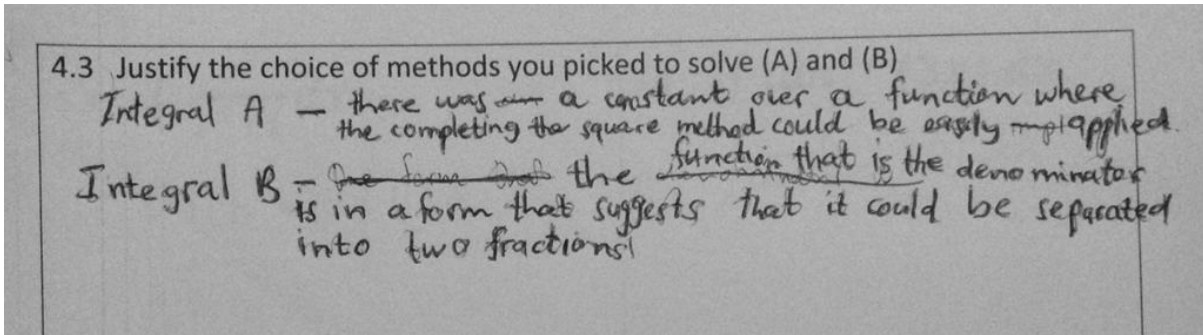 4.3 Justify the choice of methods you picked to solve (A) and (B)
Integral A – there was a constant over a function where
the completing the square method could be easily applied.
Integral B – the function that is the denominator
is in a form that suggests that it could be separated
into two fractions